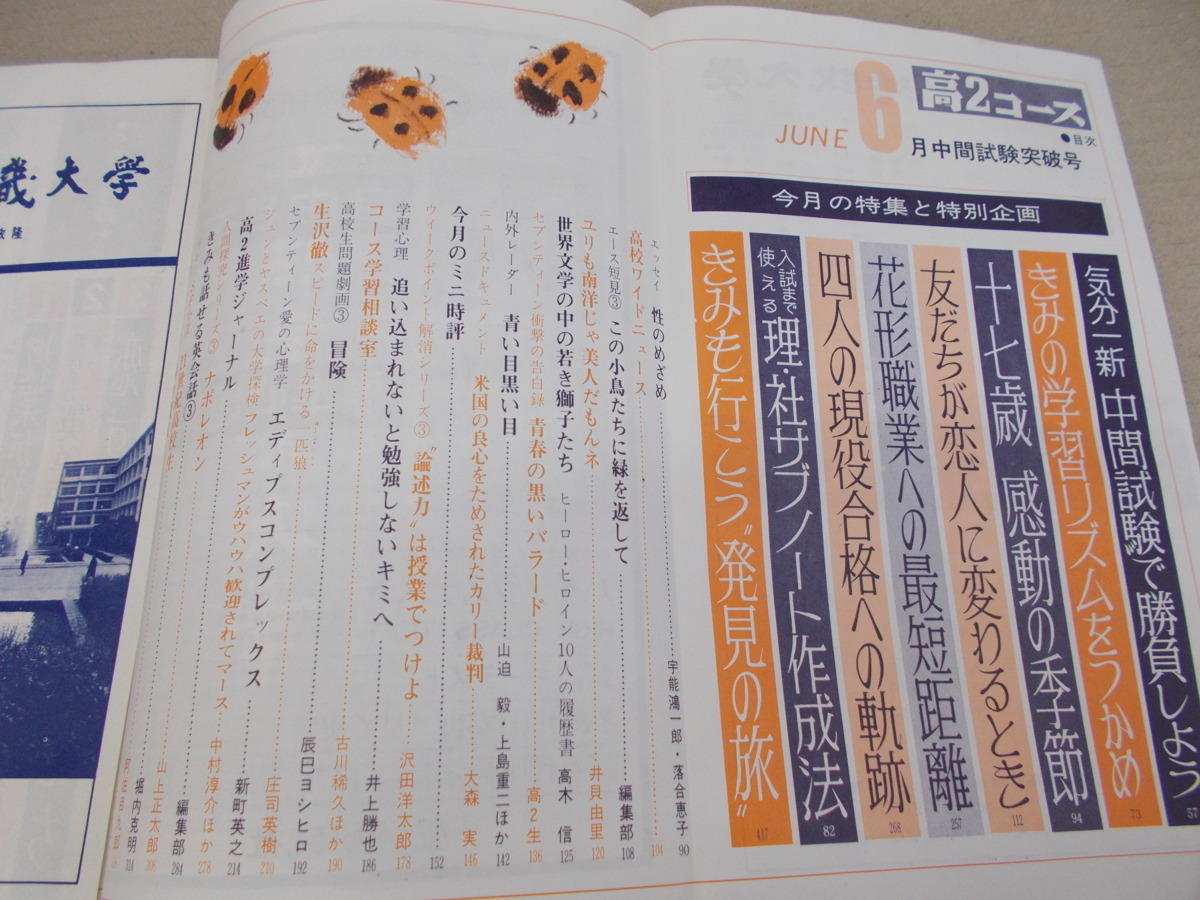 高2コース
●目次
JUNE 6月中間試験突破号
今月の特集と特別企画
気分一新 中間試験で勝負しよう 57
きみの学習リズムをつかめ 73
十七歳 感動の季節 94
友だちが恋人に変わるとき 112
花形職業への最短距離 257
四人の現役合格への軌跡 268
入試まで使える 理・社サブノート作成法 82
きみも行こう〝発見の旅〟 417
エッセイ 性のめざめ 宇能鴻一郎・落合恵子 90
高校ワイドニュース 104
エース短見③ この小鳥たちに緑を返して 編集部 108
ユリも南洋じゃ美人だもんネ 井貝由里 120
世界文学の中の若き獅子たち ヒーロー・ヒロイン10人の履歴書 高木 信 125
セブンティーン衝撃の告白録 青春の黒いバラード 高2生 136
内外レーダー 青い目黒い目 山迫 毅・上島重二ほか 142
ニュースドキュメント 米国の良心をためされたカリー裁判 大森 実 146
今月のミニ時評 152
ウイークポイント解消シリーズ③ 〝論述力〟は授業でつけよ 沢田洋太郎 178
学習心理 追い込まれないと勉強しないキミへ 井上勝也 186
コース学習相談室 古川稀久ほか 190
高校生問題劇画③ 冒険 辰巳ヨシヒロ 192
生沢徹 スピードに命をかける一匹狼 庄司英樹 210
セブンティーン愛の心理学 エディプスコンプレックス 新町英之 214
ジュンとヤスベエの大学探検 フレッシュマンがウハウハ歓迎されてマース 中村淳介ほか 278
高2進学ジャーナル 編集部 284
人間探究シリーズ③ ナポレオン 山上正太郎 308
きみも話せる英会話③ 堀内克明 314
畿大学
隆